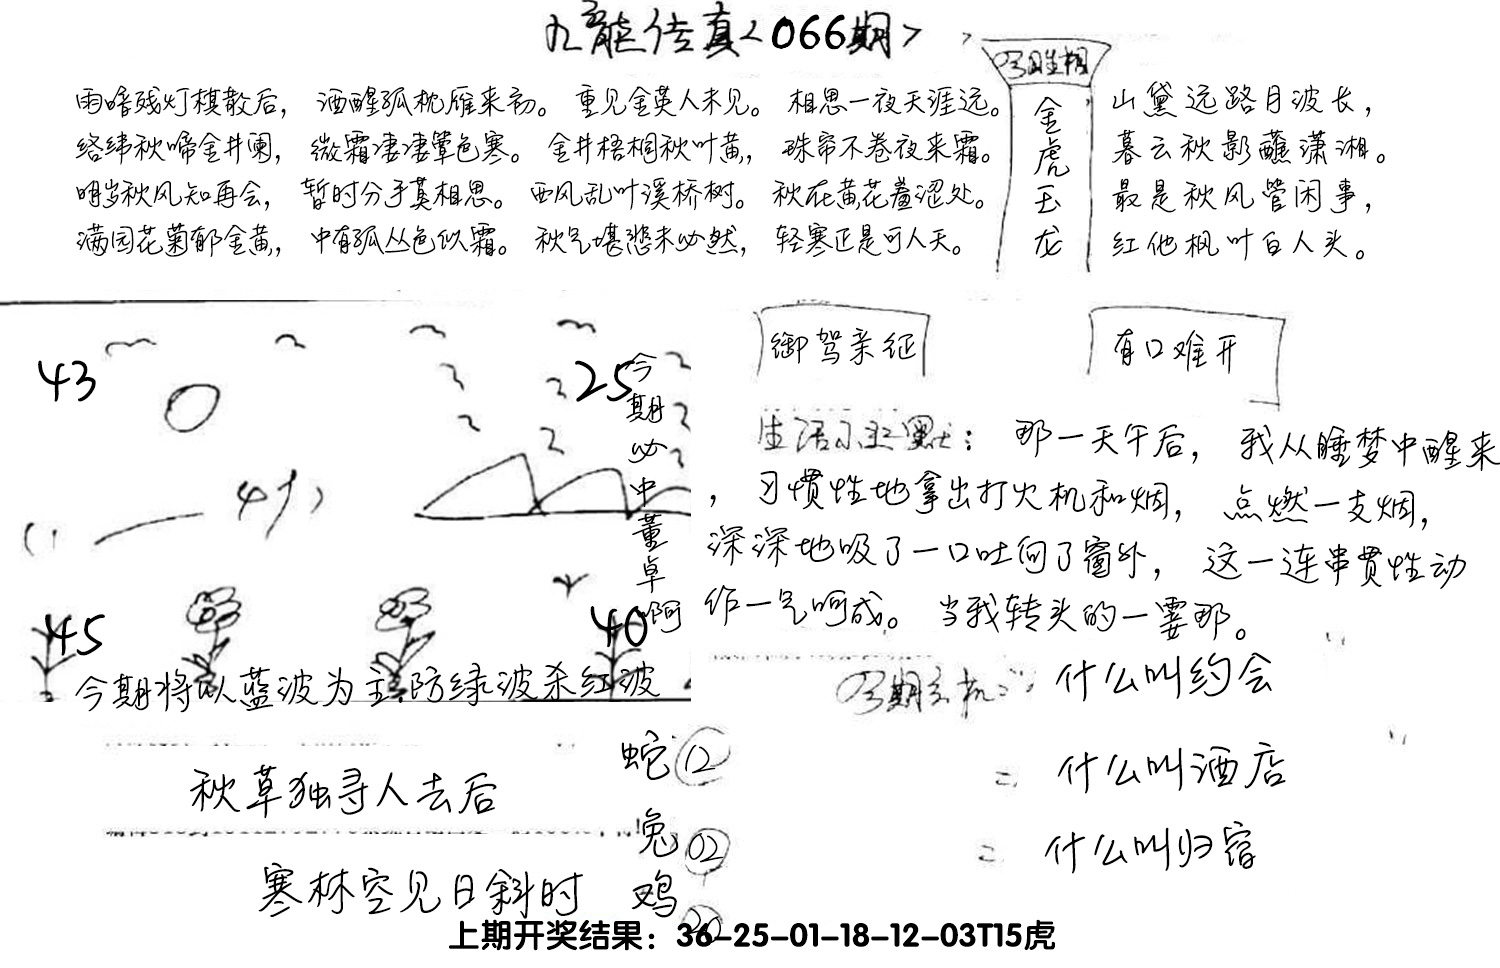 九龙传真<066期>
雨暗残灯棋散后，酒醒孤枕雁来初。重见金英人未见。相思一夜天涯远。
络纬秋啼金井阑，微霜凄凄簟色寒。金井梧桐秋叶黄，珠帘不卷夜来霜。
明岁秋风知再会，暂时分手莫相思。西风乱叶溪桥树。秋在黄花羞涩处。
满园花菊郁金黄，中有孤丛色似霜。秋气堪悲未必然，轻寒正是可人天。
金虎玉龙
山黛远路月波长，
暮云秋影蘸潇湘。
最是秋风管闲事，
红他枫叶白人头。
43
25
45
40
今期必中董卓啊
今期将以蓝波为主防绿波杀红波
御驾亲征
有口难开
生活幽默：那一天午后，我从睡梦中醒来
，习惯性地拿出打火机和烟，点燃一支烟，
深深地吸了一口吐向了窗外，这一连串贯性动
作一气呵成。当我转头的一霎那。
什么叫约会
什么叫酒店
什么叫归宿
秋草独寻人去后
寒林空见日斜时
蛇 12
兔 02
鸡 20
上期开奖结果：36-25-01-18-12-03T15虎